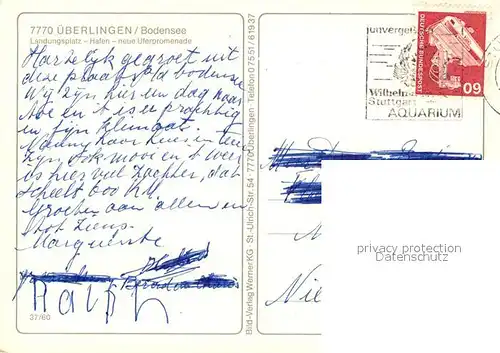 7770 ÜBERLINGEN / Bodensee
Landungsplatz – Hafen – neue Uferpromenade
Hartelijk gegroet uit
deze plaats a/d bodensee
Wij zijn hier een dag naar
toe en t is een prachtig
en fijn klimaat.
zijn ook mooi en t weer
is hier veel zachter, dat
scheelt 600 KM.
Groeten aan allen en
tot ziens.
Marguerite
Ralph
37/60
Bild-Verlag Werner KG · St.-Ulrich-Str. 54 · 7770 Überlingen · Telefon 0 75 51 / 6 19 37
unverge
Wilhelm
Stuttgart
AQUARIUM
DEUTSCHE BUNDESPOST
60
M
N
Nie
privacy protection
Datenschutz